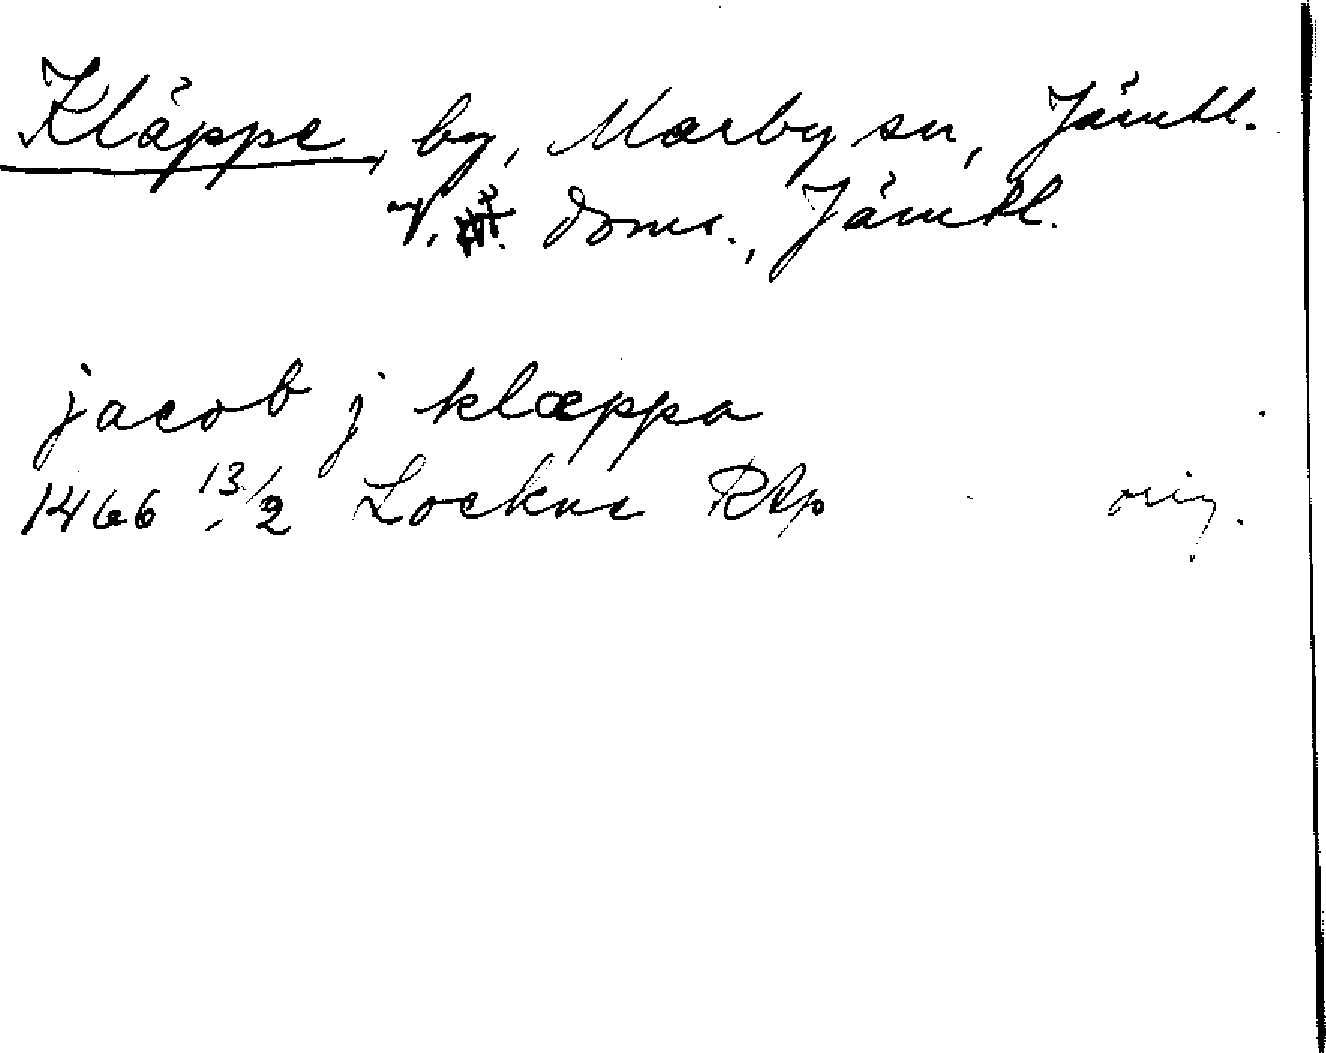 Kläppe, by, Marby sn, Jämtl.
V. doms., Jämtl.
jacob j klæppa
1466 13/2 Lockne RAp orig.